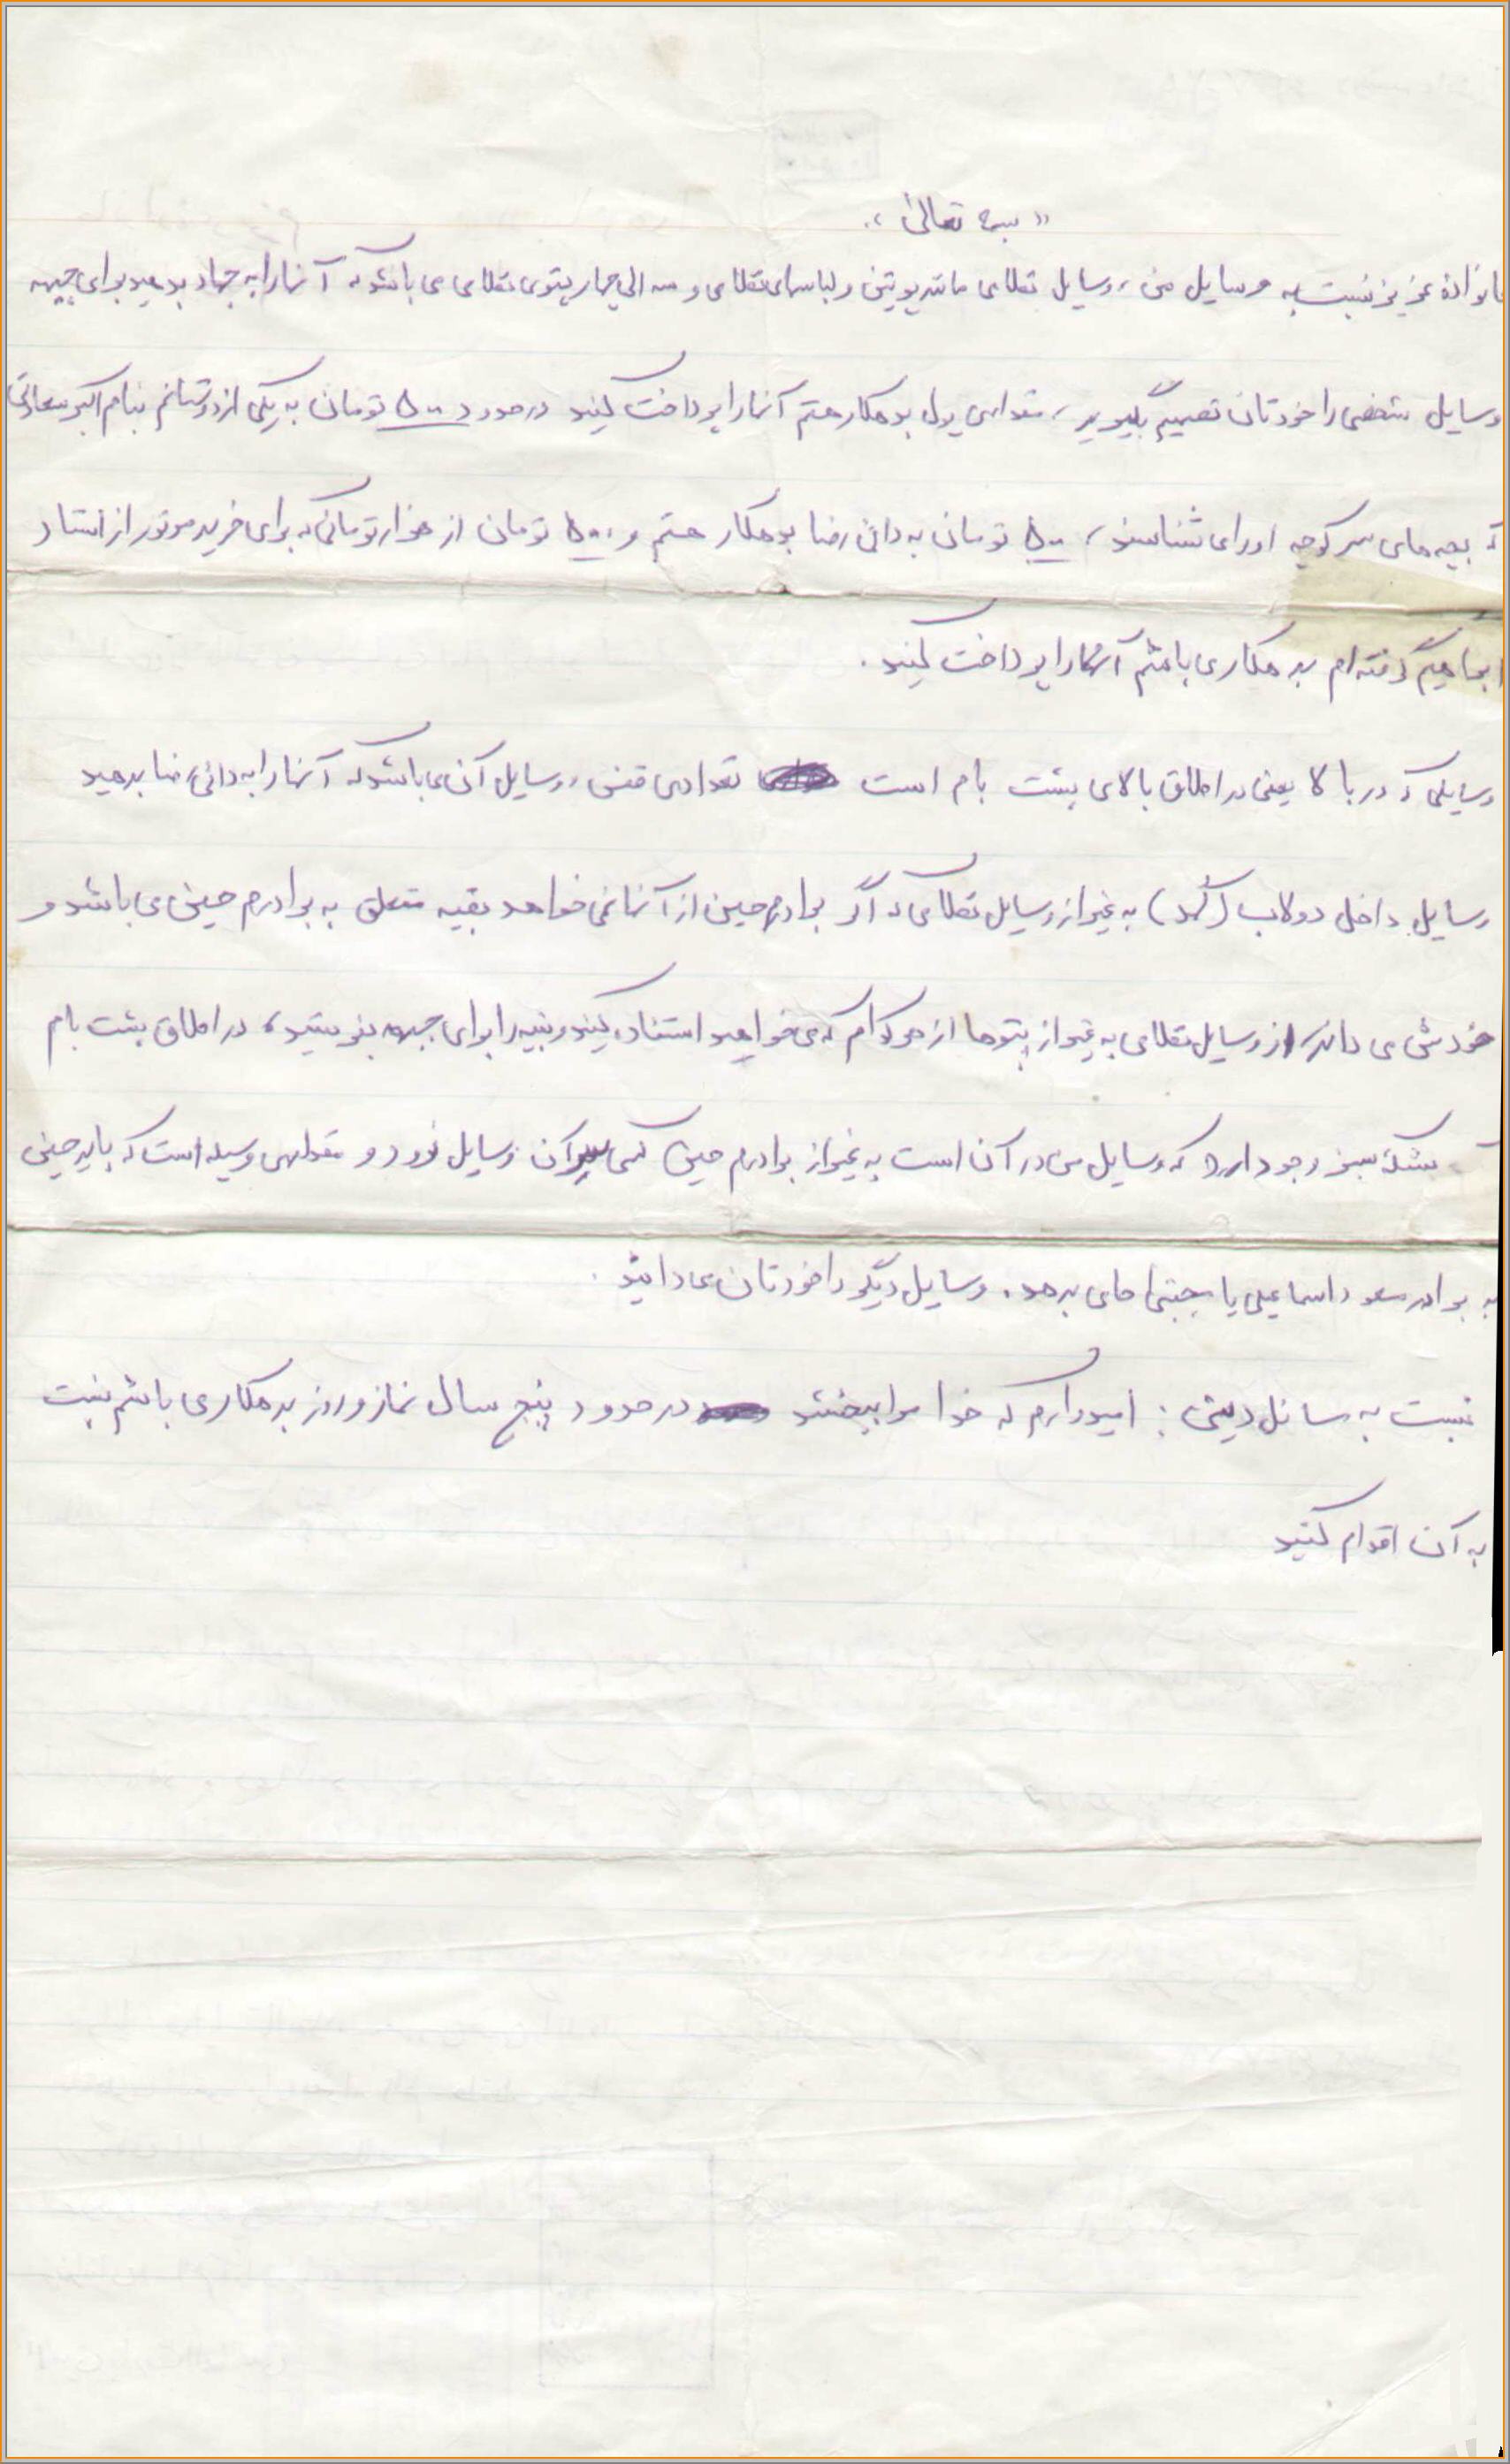 « بسمه تعالی »
خانواده عزیز نسبت به وسایل من، وسایل نظامی مانند پوتین و لباسهای نظامی و سه الی چهار پتوی نظامی می باشد که آنها را به جهاد بدهید برای جبهه
وسایل شخصی را خودتان تصمیم بگیرید، مقداری پول بدهکار هستم آنها را پرداخت کنید در حدود ۵۰۰ تومان به یکی از دوستانم بنام اکبر سعادتی
که بچه های سر کوچه او را می شناسند، ۵۰۰ تومان به دائی رضا بدهکار هستم و ۵۰۰ تومان از هزار تومانی که برای خرید موتور از استاد
ابراهیم گرفته ام بدهکار می باشم آنها را پرداخت کنید.
وسایلی که در بالا یعنی در اطاق بالای پشت بام است تعدادی قفس، وسایل آن می باشد که آنها را به دائی رضا بدهید
وسایل داخل دولاب (کمد) به غیر از وسایل نظامی که اگر برادرم حسین از آنها نمی خواهد بقیه متعلق به برادرم حسین می باشد و
خودش می داند، از وسایل نظامی به غیر از پتوها از هر کدام که می خواهید استفاده کنید و بقیه را برای جبهه بفرستید، در اطاق پشت بام
بشکه سبز وجود دارد که وسایل من در آن است به غیر از برادرم حسین کسی سر آن وسایل نرود و مقداری وسیله است که باید حسین
به برادر مسعود اسماعیلی یا مجتبی بدهد. وسایل دیگر را خودتان می دانید.
نسبت به مسائل دینی : امیدوارم که خدا مرا ببخشد در حدود پنج سال نماز و روزه بدهکار می باشم نسبت
به آن اقدام کنید